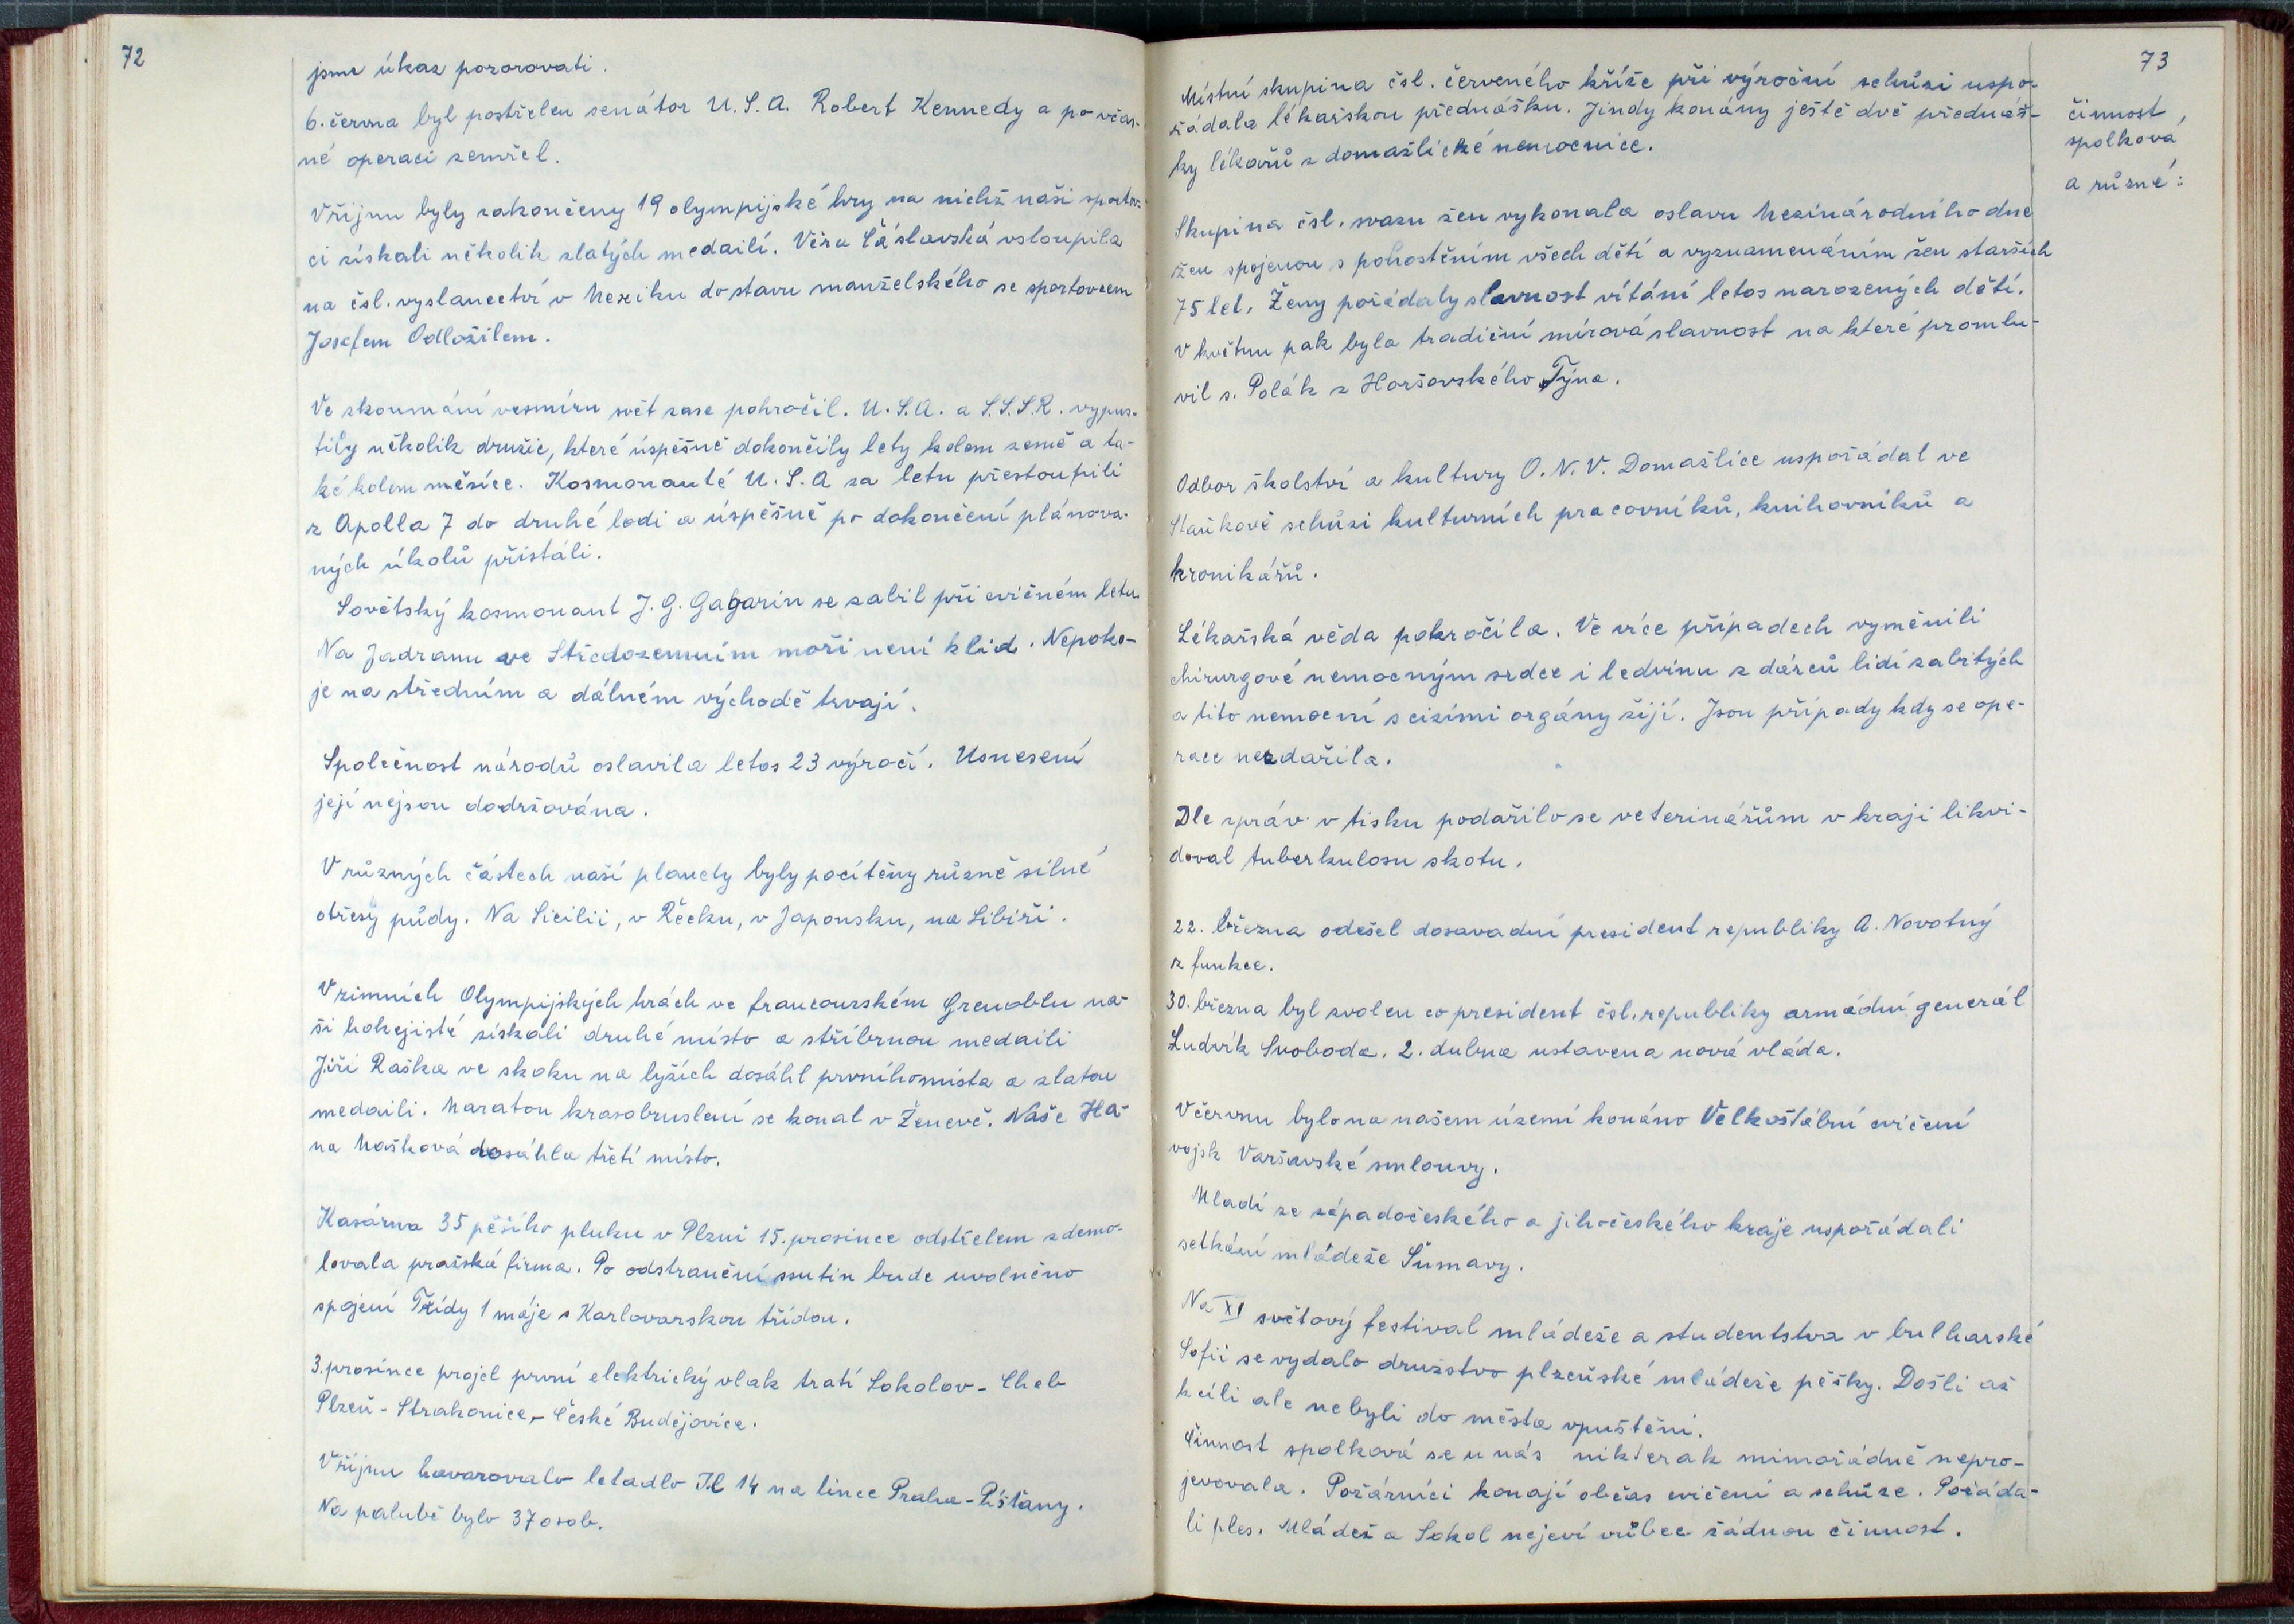 72
jsme úkaz pozorovati.
6. června byl postřelen senátor U.S.A. Robert Kennedy a po včas-
né operaci zemřel.
V říjnu byly zakončeny 19 olympijské hry na nichž naši sportov-
ci získali několik zlatých medailí. Věra Čáslavská vstoupila
na čsl. vyslanectví v Mexiku do stavu manželského se sportovcem
Josefem Odložilem.
Ve zkoumání vesmíru svět zase pokročil. U.S.A. a S.S.S.R. vypus-
tily několik družic, které úspěšně dokončily lety kolem země a ta-
ké kolem měsíce. Kosmonauté U.S.A za letu přestoupili
z Apolla 7 do druhé lodi a úspěšně po dokončení plánova-
ných úkolů přistáli.
Sovětský kosmonaut J. G. Gagarin se zabil při cvičném letu.
Na Jadranu ve Středozemním moři není klid. Nepoko-
je na středním a dálném východě trvají.
Společnost národů oslavila letos 23 výročí. Usnesení
její nejsou dodržována.
V různých částech naší planety byly pocítěny různě silné
otřesy půdy. Na Sicilii, v Řecku, v Japonsku, na Sibiři.
V zimních Olympijských hrách ve francouzském Grenoblu na-
ši hokejisté získali druhé místo a stříbrnou medaili
Jiří Raška ve skoku na lyžích dosáhl prvního místa a zlatou
medaili. Maraton krasobruslení se konal v Ženevě. Naše Ha-
na Mašková dosáhla třetí místo.
Kasárna 35 pěšího pluku v Plzni 15. prosince odstřelem zdemo-
lovala pražská firma. Po odstranění ssutin bude uvolněno
spojení Třídy 1 máje s Karlovarskou třídou.
3. prosince projel první elektrický vlak tratí Sokolov - Cheb
Plzeň - Strakonice, - České Budějovice.
V říjnu havarovalo letadlo Il 14 na lince Praha - Píšťany.
Na palubě bylo 37 osob.
73
činnost
spolková
a různé:
Místní skupina čsl. červeného kříže při výroční schůzi uspo-
řádala lékařskou přednášku. Jindy konány ještě dvě přednáš-
ky lékařů z domažlické nemocnice.
Skupina čsl. svazu žen vykonala oslavu Mezinárodního dne
žen spojenou s pohostěním všech dětí a vyznamenáním žen starších
75 let. Ženy pořádaly slavnost vítání letos narozených dětí.
V květnu pak byla tradiční mírová slavnost na které promlu-
vil s. Polák z Horšovského Týna.
Odbor školství a kultury O.N.V. Domažlice uspořádal ve
Staňkově schůzi kulturních pracovníků, knihovníků a
kronikářů.
Lékařská věda pokročila. Ve více případech vyměnili
chirurgové nemocným srdce i ledvinu z dárců lidí zabitých
a tito nemocní s cizími orgány žijí. Jsou případy kdy se ope-
race nezdařila.
Dle zpráv v tisku podařilo se veterinářům v kraji likvi-
doval tuberkulosu skotu.
22. března odešel dosavadní president republiky A. Novotný
z funkce.
30. března byl zvolen co president čsl. republiky armádní generál
Ludvík Svoboda. 2. dubna ustavena nová vláda.
V červnu bylo na našem území konáno Velkoštábní cvičení
vojsk Varšavské smlouvy.
Mladí ze západočeského a jihočeského kraje uspořádali
setkání mládeže Šumavy.
Na XI světový festival mládeže a studentstva v bulharské
Sofii se vydalo družstvo plzeňské mládeže pěšky. Došli až
k cíli ale nebyli do města vpuštěni.
Činnost spolková se u nás nikterak mimořádně nepro-
jevovala. Požárníci konají občas cvičení a schůze. Pořáda-
li ples. Mládež a Sokol nejeví vůbec žádnou činnost.